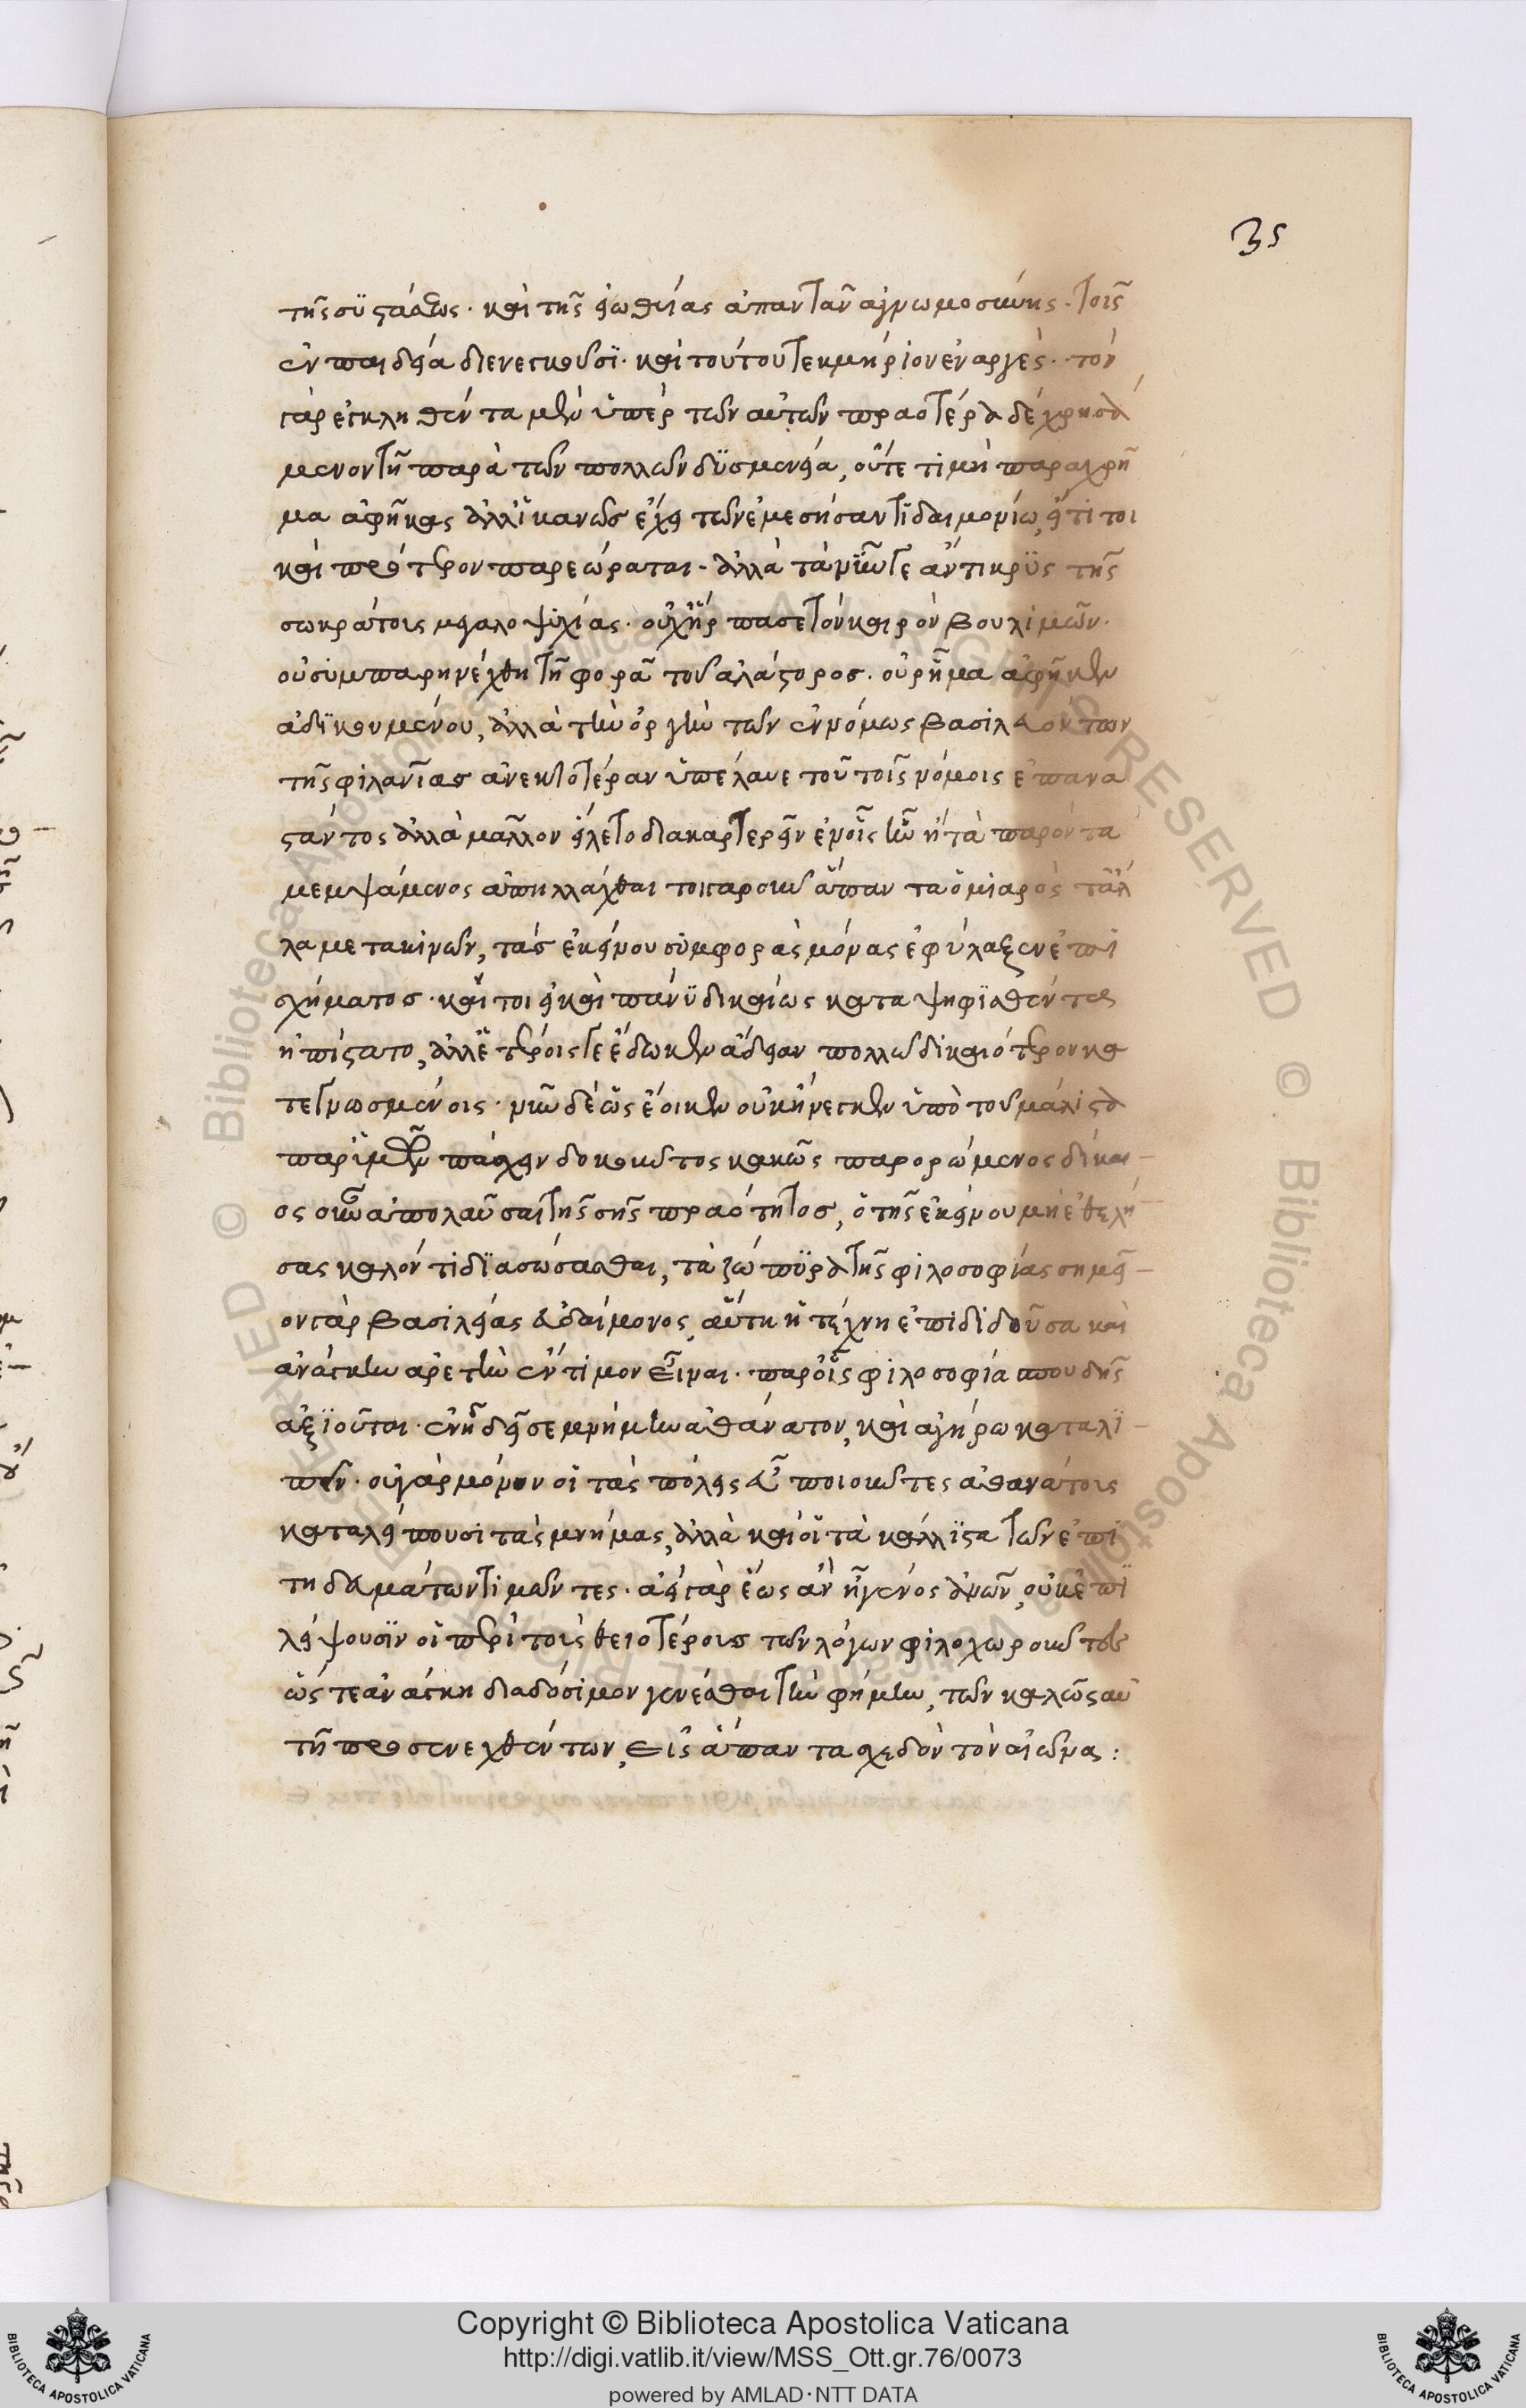 35
τῆς συστάσεως· καὶ τῆς εἰωθυίας ἀπαντᾶν ἀγνωμοσύνης τοῖς
ἐν παιδείᾳ διενεγκοῦσι· καὶ τούτου τεκμήριον ἐναργὲς· τὸν
γὰρ ἐγκληθέντα μὲν ὑπὲρ τῶν αὐτῶν πραοτέρα δὲ χρησά
μενον τῇ παρὰ τῶν πολλῶν δυσμενείᾳ, οὔτε τιμὴ παραχρῆ
μα ἀφῆκας ἀλλ' ἱκανῶς ἔχει τῶ νεμεσήσαντι δαιμονίω, εἴ τί τοι
καὶ πρότερον παρεώραται· ἀλλὰ τὰ νῦν τε ἄντικρυς τῆς
σωκράτους μεγαλοψυχίας· οὐχ ἥρπασε τὸν καιρὸν βουλιμῶν·
οὐ συμπαρηνέχθη τῇ φορᾷ τοῦ ἀλάστορος· οὐ ῥῆμα ἀφῆκεν
ἀδικουμένου, ἀλλὰ τὴν ὀργὴν τῶν ἐννόμως βασιλευόντων
τῆς φιλανθρωπίας ἀνεκτοτέραν ὑπέλαβε τοῦ τοῖς νόμοις ἐπανα
στάντος ἀλλὰ μᾶλλον εἵλετο διακαρτερεῖν ἐν οἷς ἦν ἢ τὰ παρόντα
μεμψάμενος ἀπηλλάχθαι τοιγαροῦν ἅπαντα ὁ μιαρὸς τἆλ
λα μετακινῶν, τὰς ἐκείνου συμφορὰς μόνας ἐφύλαξεν ἐπὶ
σχήματος· καίτοι εἰ καὶ πάνυ δικαίως καταψηφισθέντας
ἠπίστατο, ἀλλ' ἑτέροις γε ἔδωκεν ἄδειαν πολλῷ δικαιότερον κα
τεγνωσμένοις· νῦν δὲ ὡς ἔοικεν οὐκ ἤνεγκεν ὑπὸ τοῦ μάλιστα
παρ' ἡμῶν πάσχειν δοκοῦντος κακῶς παρορώμενος δίκαι
ος οὖν ἀπολαῦσαι τῆς σῆς πραότητος, ὁ τῆς ἐκείνου μὴ ἐθελή
σας καλόν τι διασώσασθαι, τὰ ζώπυρα τῆς φιλοσοφίας σημεῖ
ον γὰρ βασιλείας εὐδαίμονος, αὕτη ἡ τέχνη ἐπιδιδοῦσα καὶ
ἀνάγκην ἀρετὴν ἔντιμον εἶναι· παρ' οἷς φιλοσοφία σπουδῆς
ἀξιοῦται· ἐν ᾗ δεῖ σε μνήμην ἀθάνατον, καὶ ἀγήρω καταλι
πεῖν· οὐ γὰρ μόνον οἱ τὰς πόλεις εὖ ποιοῦντες ἀθανάτους
καταλείπουσι τὰς μνήμας, ἀλλὰ καὶ οἱ τὰ κάλλιστα τῶν ἐπι
τηδευμάτων τιμῶντες· ἀεὶ γὰρ ἕως ἂν ᾖ γένος ἀνθρώπων, οὐκ ἐπι
λείψουσιν οἱ περὶ τοὺς θειοτέρους τῶν λόγων φιλοχωροῦντες
ὥστε ἀνάγκη διαδόσιμον γενέσθαι τὴν φήμην, τῶν καλῶς αὐ
τῇ προσενεχθέντων, εἰς ἅπαντα σχεδὸν τὸν αἰῶνα:
Copyright © Biblioteca Apostolica Vaticana
http://digi.vatlib.it/view/MSS_Ott.gr.76/0073
powered by AMLAD·NTT DATA